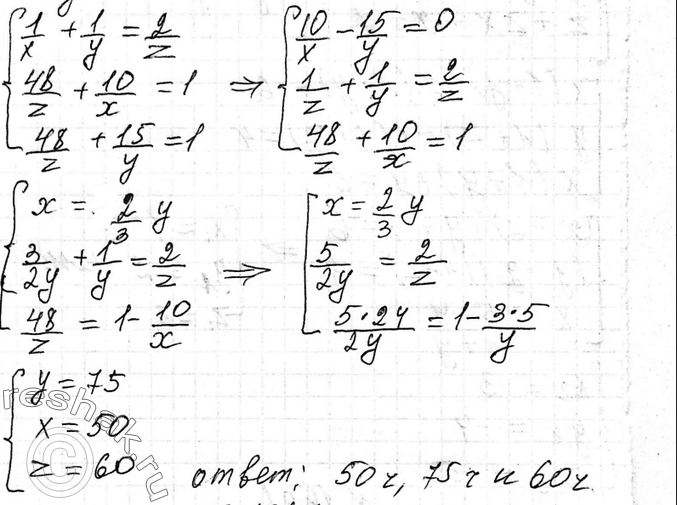 { 1/x + 1/y = 2/z
48/z + 10/x = 1
48/z + 15/y = 1
⇒ { 10/x - 15/y = 0
1/z + 1/y = 2/z
48/z + 10/x = 1
{ x = 2/3 y
3/2y + 1/y = 2/z
48/z = 1 - 10/x
⇒ [ x = 2/3 y
5/2y = 2/z
5·24/2y = 1 - 3·5/y
{ y = 75
x = 50
z = 60
ответ: 50ч, 75ч и 60ч.
reshak.ru